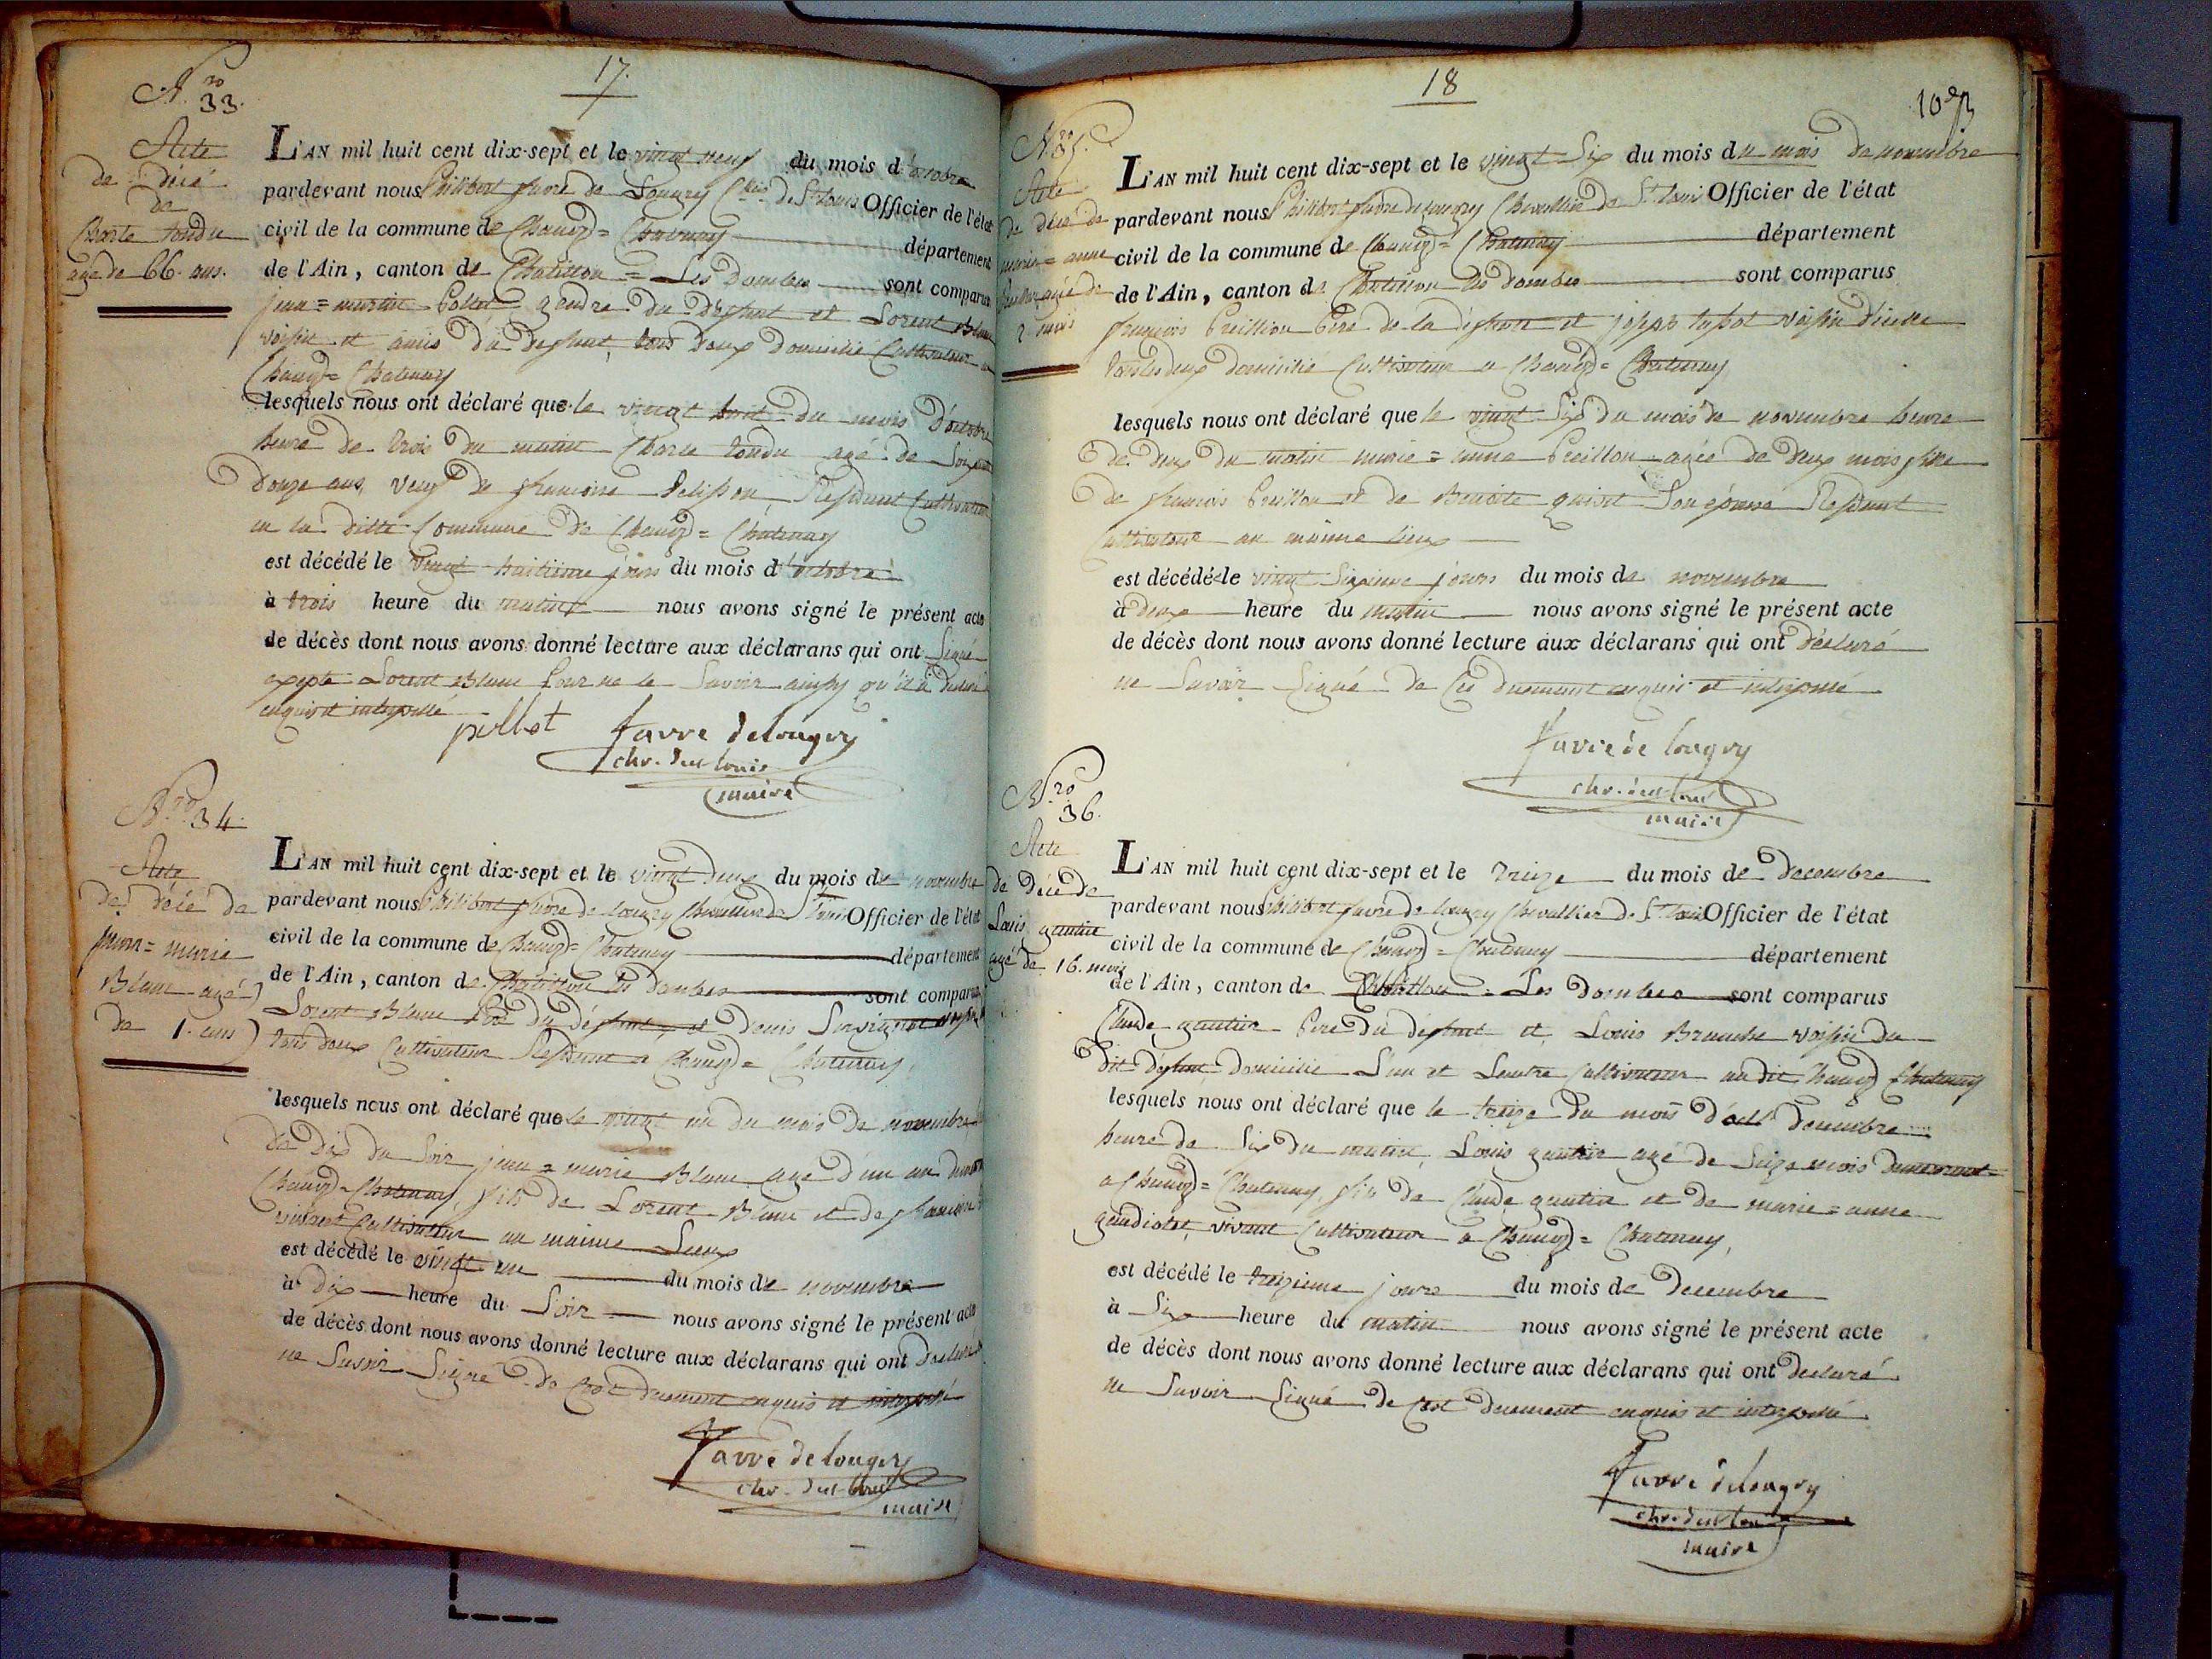 17.
Nro 33.
Acte
de décé
de
Charle tondu
agé de 66. ans.
L'AN mil huit cent dix-sept et le vingt neuf du mois d'octobre
pardevant nous Philibert favre de Longry Cher de St Louis Officier de l'état
civil de la commune de Chanoz = Chatenay département
de l'Ain, canton de Chatillon = Les Dombes sont comparus
jean = martin gendre du deffunt et Lorent Blanc
voisin et amis du deffunt, tous deux Domicilié Cultivateur a
Chanoz = Chatenay
lesquels nous ont déclaré que le vingt huit du mois D'octobre
heure de trois du matin Charle tondu agé de Soixante
Douze ans, veuf de francoise Resident Cultivateur
en la ditte Commune de Chanoz = Chatenay
est décédé le vingt huitiéme jours du mois d'octobre
à trois heure du matin nous avons signé le présent acte
de décès dont nous avons donné lecture aux déclarans qui ont Signé
exepté Lorent Blanc pour ne le Savoir ainsy qu'il a declaré
enquis et interpellé
pillot favre delongry
chr. de st louis
maire
Nro 34.
Acte
de décé de
jean = marie
Blanc agé
de 1. ans
L'AN mil huit cent dix-sept et le vingt deux du mois de novembre
pardevant nous Philibert favre de longry Chevallier de St Louis Officier de l'état
civil de la commune de Chanoz = Chatenay département
de l'Ain, canton de Chatillon les dombes sont comparus
Lorent Blanc Pere du deffunt, et Denis
tous deux Cultivateur Resident a Chanoz = Chatenay,
lesquels nous ont déclaré que le vingt un du mois de novembre
de dix du Soir jean = marie Blanc agé d'un an
Chanoz = Chatenay, fils de Lorent Blanc et de francoise
vivant Cultivateur au maime Lieux
est décédé le vingt un du mois de novembre
à dix heure du Soir nous avons signé le présent acte
de décès dont nous avons donné lecture aux déclarans qui ont declaré
ne Savoir Signé de duement enquis et interpellé
favre de longry
chr. de st louis
maire
18
10
Nro 35.
Acte
de décé de
marie = anne
agée de
2. mois
L'AN mil huit cent dix-sept et le vingt Six du mois du mois de novembre
pardevant nous Philibert favre de longry Chevallier de St Louis Officier de l'état
civil de la commune de Chanoz = Chatenay département
de l'Ain, canton de Chatillon les dombes sont comparus
francois Pere de la deffunte et joseph voisin d'icelle
tous les deux domicilié Cultivateur a Chanoz = Chatenay
lesquels nous ont déclaré que le vingt Six du mois de novembre heure
de deux du matin marie = anne agée de deux mois fille
de francois et de Benoite Son épouse Resident
Cultivateur au maime lieux
est décédé le vingt Sixieme jours du mois de novembre
à deux heure du matin nous avons signé le présent acte
de décès dont nous avons donné lecture aux déclarans qui ont déclaré
ne Savoir Signé de Ce duement enquis et interpellé
favre de longry
chr. de st louis
maire
Nro 36.
Acte
de décé de
Louis gautier
agé de 16. mois
L'AN mil huit cent dix-sept et le treize du mois de Decembre
pardevant nous Philibert favre de longry Chevallier de St Louis Officier de l'état
civil de la commune de Chanoz = Chatenay département
de l'Ain, canton de Chatillon = Les Dombes sont comparus
Claude gautier Pere du deffunt et Louis Branche voisin du
dit deffunt Domicilié L'un et Lautre Cultivateur au dit Chanoz Chatenay
lesquels nous ont déclaré que le treize du mois Decembre
heure de Six du matin, Louis gautier agé de Seize mois
a Chanoz = Chatenay, fils de Claude gautier et de marie = anne
gaudiolet, vivant Cultivateur a Chanoz = Chatenay,
est décédé le treizieme jours du mois de Decembre
à Six heure du matin nous avons signé le présent acte
de décès dont nous avons donné lecture aux déclarans qui ont declaré
ne Savoir Signé de duement enquis et interpellé
favre delongry
chr. de st louis
maire